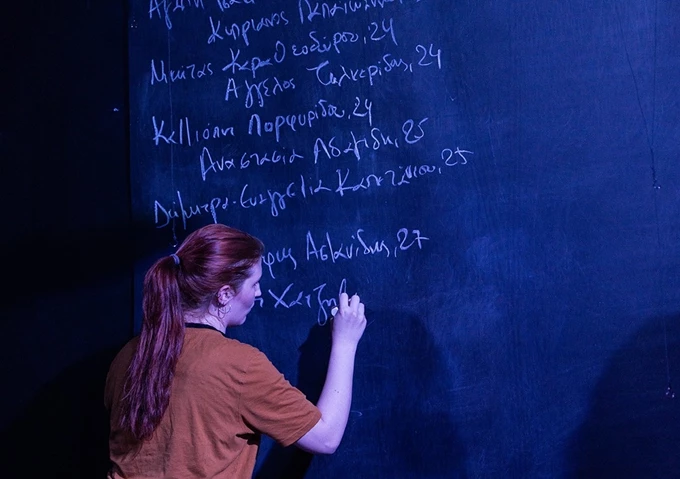 Κυπριανός Παπαϊωάν
Νικήτας Καραθεοδώρου, 24
Άγγελος Τηλκερίδης, 24
Καλλιόπη Πορφυρίδου, 24
Αναστασία Αδαμίδη, 25
Δήμητρα-Ευαγγελία Καπετάνιου, 25
Ασλανίδης, 27
Χατζη